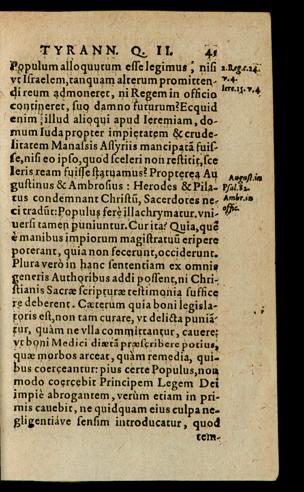 TYRANN. Q. II. 41
Populum alloquutum esse legimus, nisi
vt Israelem, tanquam alterum promitten-
di reum admoneret, ni Regem in officio
contineret, suo damno futurum? Ecquid
enim illud alioqui apud Ieremiam, do-
mum Iuda propter impietatem & crude-
litatem Manassis Assyriis mancipatā fuis-
se, nisi eo ipso, quod sceleri non restitit, sce
leris ream fuisse statuamus? Propterea Au
gustinus & Ambrosius: Herodes & Pila-
tus condemnant Christū, Sacerdotes ne-
ci tradūt: Populus ferè illachrymatur. vni-
uersi tamen puniuntur. Cur ita? Quia, quē
è manibus impiorum magistratuū eripere
poterant, quia non fecerunt, occiderunt.
Plura verò in hanc sententiam ex omnis
generis Authoribus addi possent, ni Chri-
stianis Sacræ scripturæ testimonia suffice
re deberent. Cæterum quia boni legisla-
toris est, non tam curare, vt delicta puniā-
tur, quàm ne vlla committantur, cauere;
vt boni Medici diætā præscribere potius,
quæ morbos arceat, quàm remedia, qui-
bus coerceantur: pius certe Populus, non
modo coercebit Principem Legem Dei
impiè abrogantem, verùm etiam in pri-
mis cauebit, ne quidquam eius culpa ne-
gligentiáve sensim introducatur, quod
tem-
2. Reg. c. 24.
v. 4.
Iere. 15. v. 4
August. in
Psal. 82.
Ambr. in
offic.